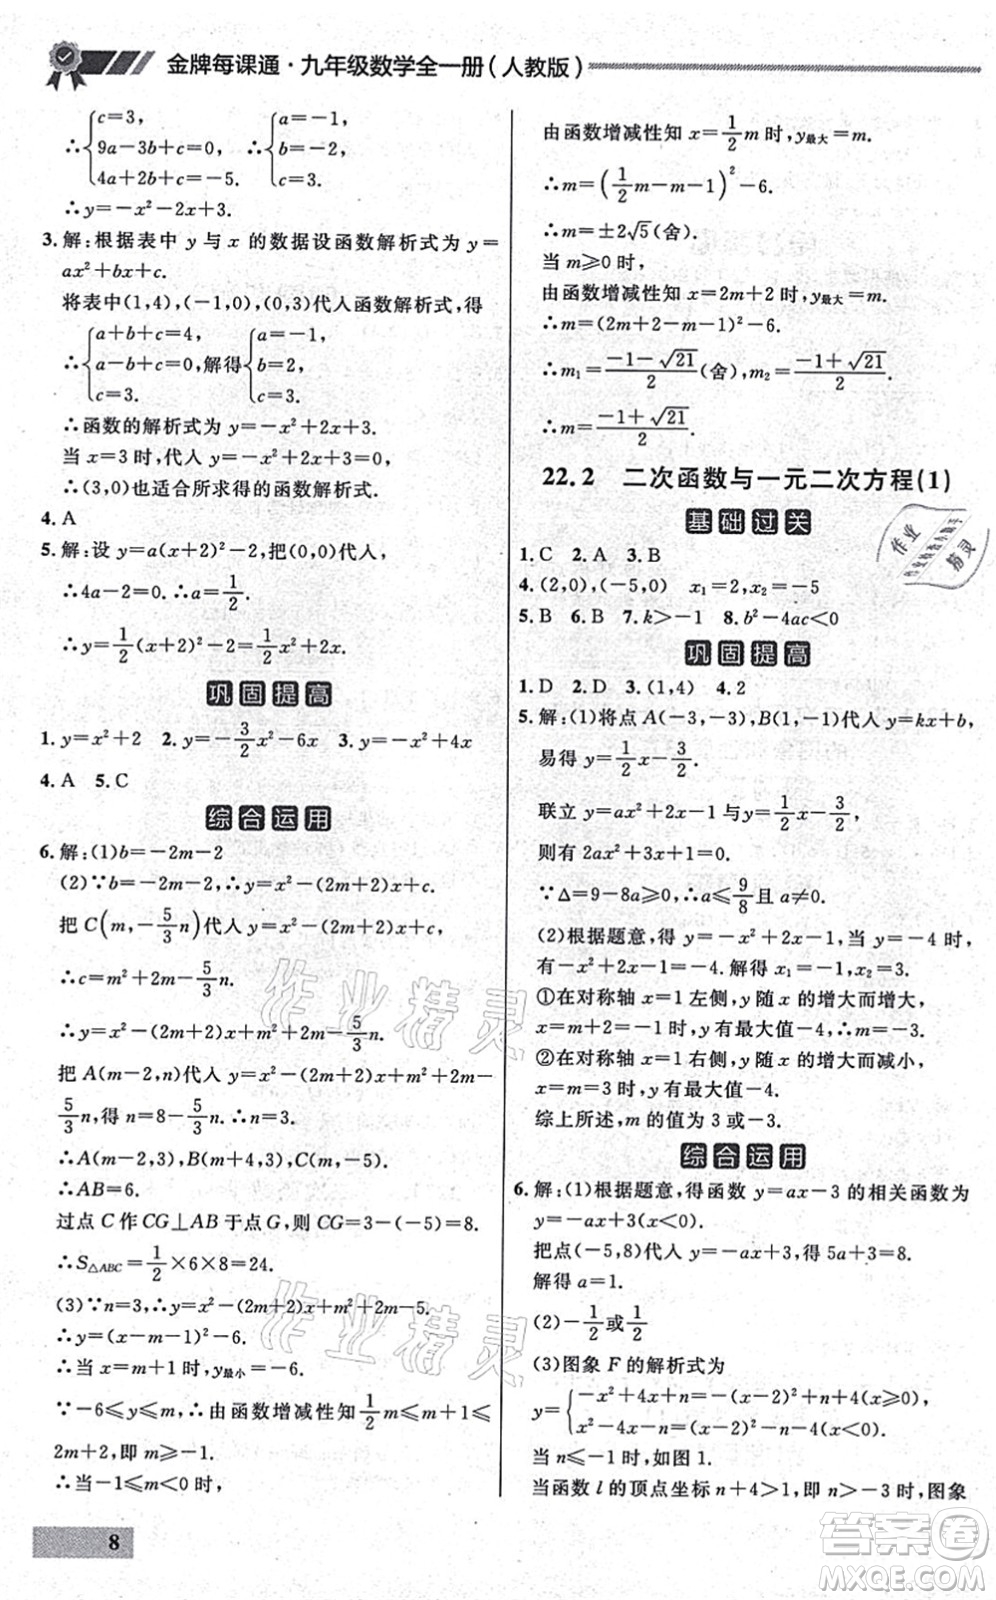 金牌每课通·九年级数学全一册(人教版)
∴{c=3, 9a-3b+c=0, 4a+2b+c=-5. ∴{a=-1, b=-2, c=3.
∴y=-x²-2x+3.
3. 解:根据表中 y 与 x 的数据设函数解析式为 y=
ax²+bx+c.
将表中(1,4),(-1,0),(0,3)代入函数解析式,得
∴{a+b+c=4, a-b+c=0, c=3. 解得{a=-1, b=2, c=3.
∴函数的解析式为 y=-x²+2x+3.
当 x=3 时,代入 y=-x²+2x+3=0.
∴(3,0)也适合所求得的函数解析式.
4. A
5. 解:设 y=a(x+2)²-2,把(0,0)代入,
∴4a-2=0.∴a=1/2.
∴y=1/2(x+2)²-2=1/2x²+2x.
巩固提高
1. y=x²+2 2. y=-3/2x²-6x 3. y=-x²+4x
4. A 5. C
综合运用
6. 解:(1)b=-2m-2
(2)∵b=-2m-2,∴y=x²-(2m+2)x+c.
把 C(m,-5/3n)代入 y=x²-(2m+2)x+c,
∴c=m²+2m-5/3n.
∴y=x²-(2m+2)x+m²+2m-5/3n.
把 A(m-2,n)代入 y=x²-(2m+2)x+m²+2m-
5/3n,得 n=8-5/3n,∴n=3.
∴A(m-2,3),B(m+4,3),C(m,-5).
∴AB=6.
过点 C 作 CG⊥AB 于点 G,则 CG=3-(-5)=8.
∴S△ABC=1/2×6×8=24.
(3)∵n=3,∴y=x²-(2m+2)x+m²+2m-5.
∴y=(x-m-1)²-6.
∴当 x=m+1 时,y最小=-6.
∵-6≤y≤m,∴由函数增减性知 1/2m≤m+1≤
2m+2,即 m≥-1.
∴当-1≤m≤0 时,
8
由函数增减性知 x=1/2m 时,y最大=m.
∴m=(1/2m-m-1)²-6.
∴m=±2√5(舍).
当 m≥0 时,
由函数增减性知 x=2m+2 时,y最大=m.
∴m=(2m+2-m-1)²-6.
∴m₁=(-1-√21)/2(舍),m₂=(-1+√21)/2.
∴m=(-1+√21)/2.
22.2 二次函数与一元二次方程(1)
基础过关
1. C 2. A 3. B
4. (2,0),(-5,0) x₁=2,x₂=-5
5. B 6. B 7. k>-1 8. b²-4ac<0
巩固提高
1. D 2. D 3. (1,4) 4. 2
5. 解:(1)将点 A(-3,-3),B(1,-1)代入 y=kx+b,
易得 y=1/2x-3/2.
联立 y=ax²+2x-1 与 y=1/2x-3/2,
则有 2ax²+3x+1=0,
∵Δ=9-8a≥0,∴a≤9/8 且 a≠0.
(2)根据题意,得 y=-x²+2x-1,当 y=-4 时,
有-x²+2x-1=-4.解得 x₁=-1,x₂=3.
①在对称轴 x=1 左侧,y 随 x 的增大而增大,
∴x=m=-1 时,y 有最大值-4,∴m=-3.
②在对称轴 x=1 右侧,y 随 x 的增大而减小,
∴x=m=3 时,y 有最大值-4.
综上所述,m 的值为 3 或-3.
综合运用
6. 解:(1)根据题意,得函数 y=ax-3 的相关函数为
y=-ax+3(x<0).
把点(-5,8)代入 y=-ax+3,得 5a+3=8.
解得 a=1.
(2)-1/2或3/2
(3)图象 F 的解析式为
y={-x²+4x+n=-(x-2)²+n+4(x≥0), x²-4x-n=(x-2)²-n-4(x<0).
当 n≤-1 时,如图 1.
当函数 l 的顶点坐标 n+4>1,即 n>-3 时,图象
作业精灵
作业精灵
作业
精灵
答案圈
MXQE.COM